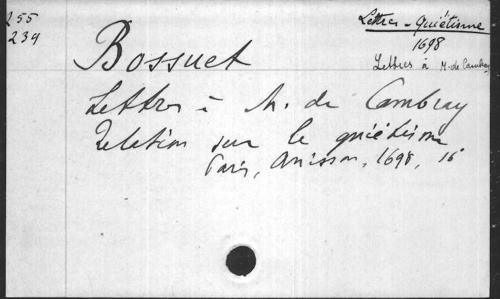 255
234
Lettres - Quiétisme
1698
Lettres à M. de Cambray
Bossuet
Lettres à M. de Cambray
Relation sur le quiétisme
Paris, Anisson, 1698, 16°